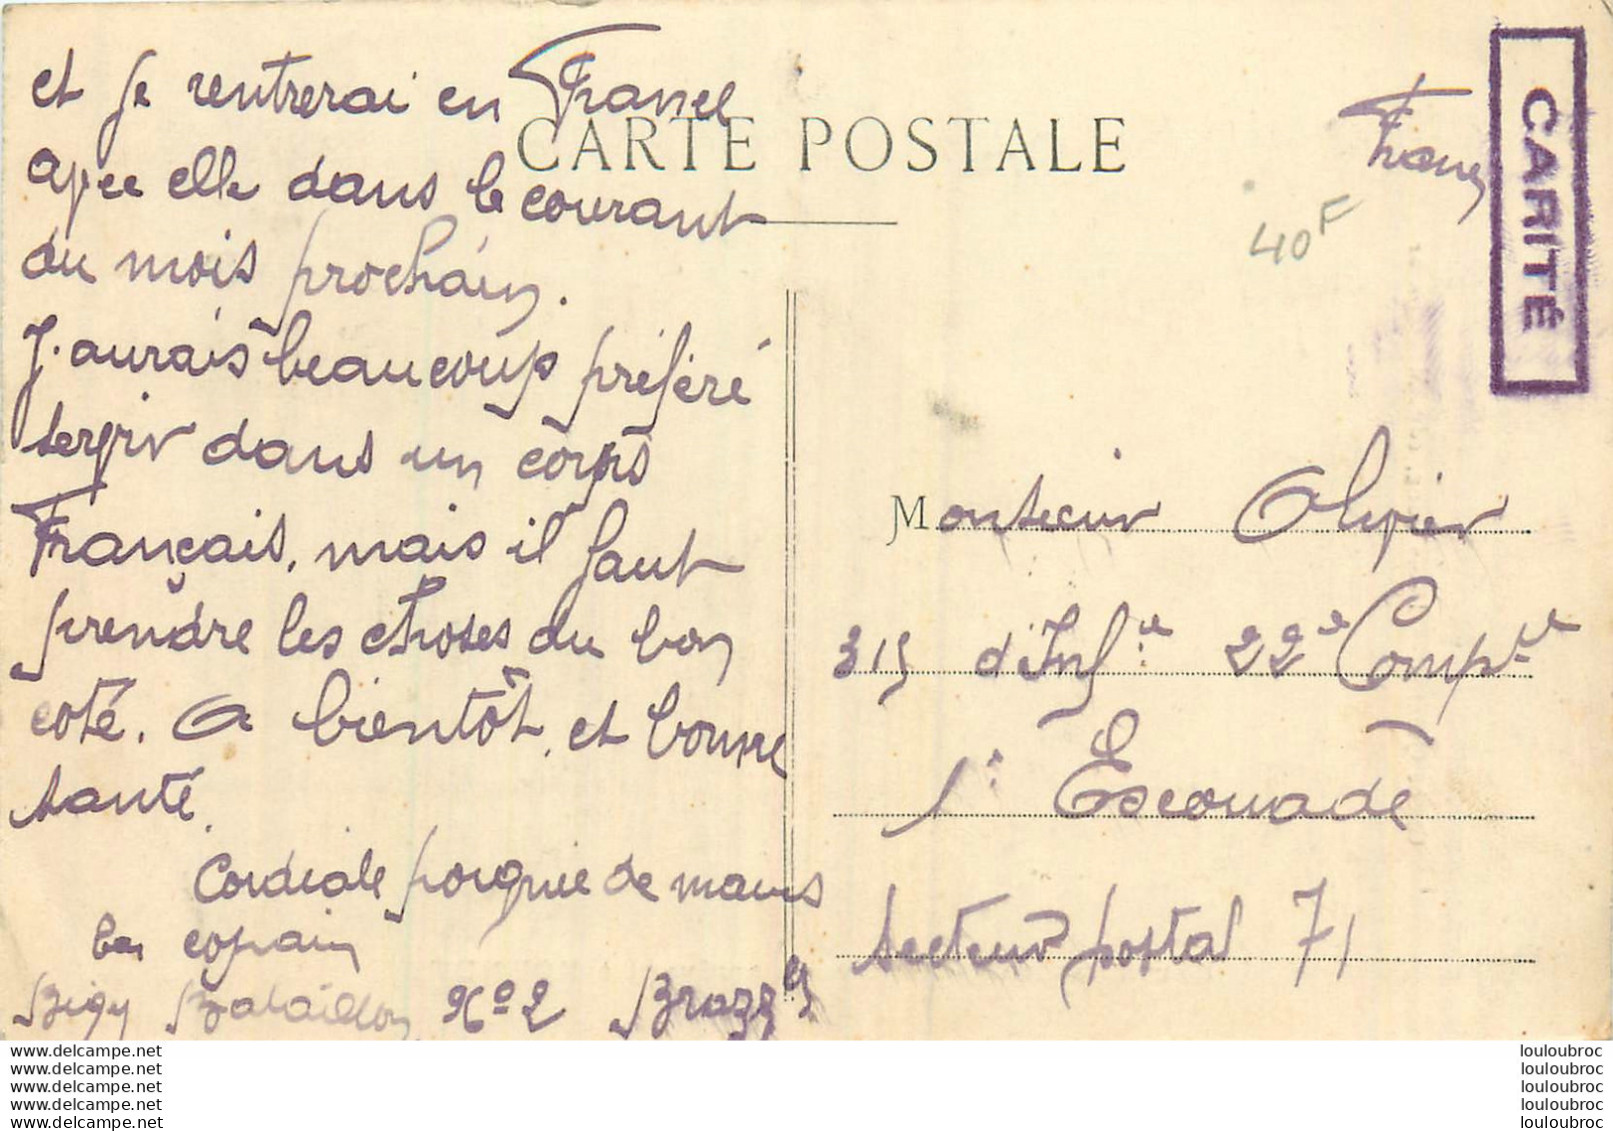 et je rentrerai en France
avec elle dans le courant
du mois prochain.
J'aurais beaucoup préféré
servir dans un corps
Français, mais il faut
prendre les choses du bon
coté. A bientôt, et bonne
santé.
Cordiale poignée de mains
copain
Bataillon No 2
CARTE POSTALE
France
CARITÉ
40F
Monsieur Olivier
315 d'Infie 22e Compie
1e Escouade
Secteur postal 71
www.delcampe.net
www.delcampe.net
www.delcampe.net
www.delcampe.net
www.delcampe.net
louloubroc
louloubroc
louloubroc
louloubroc
louloubroc